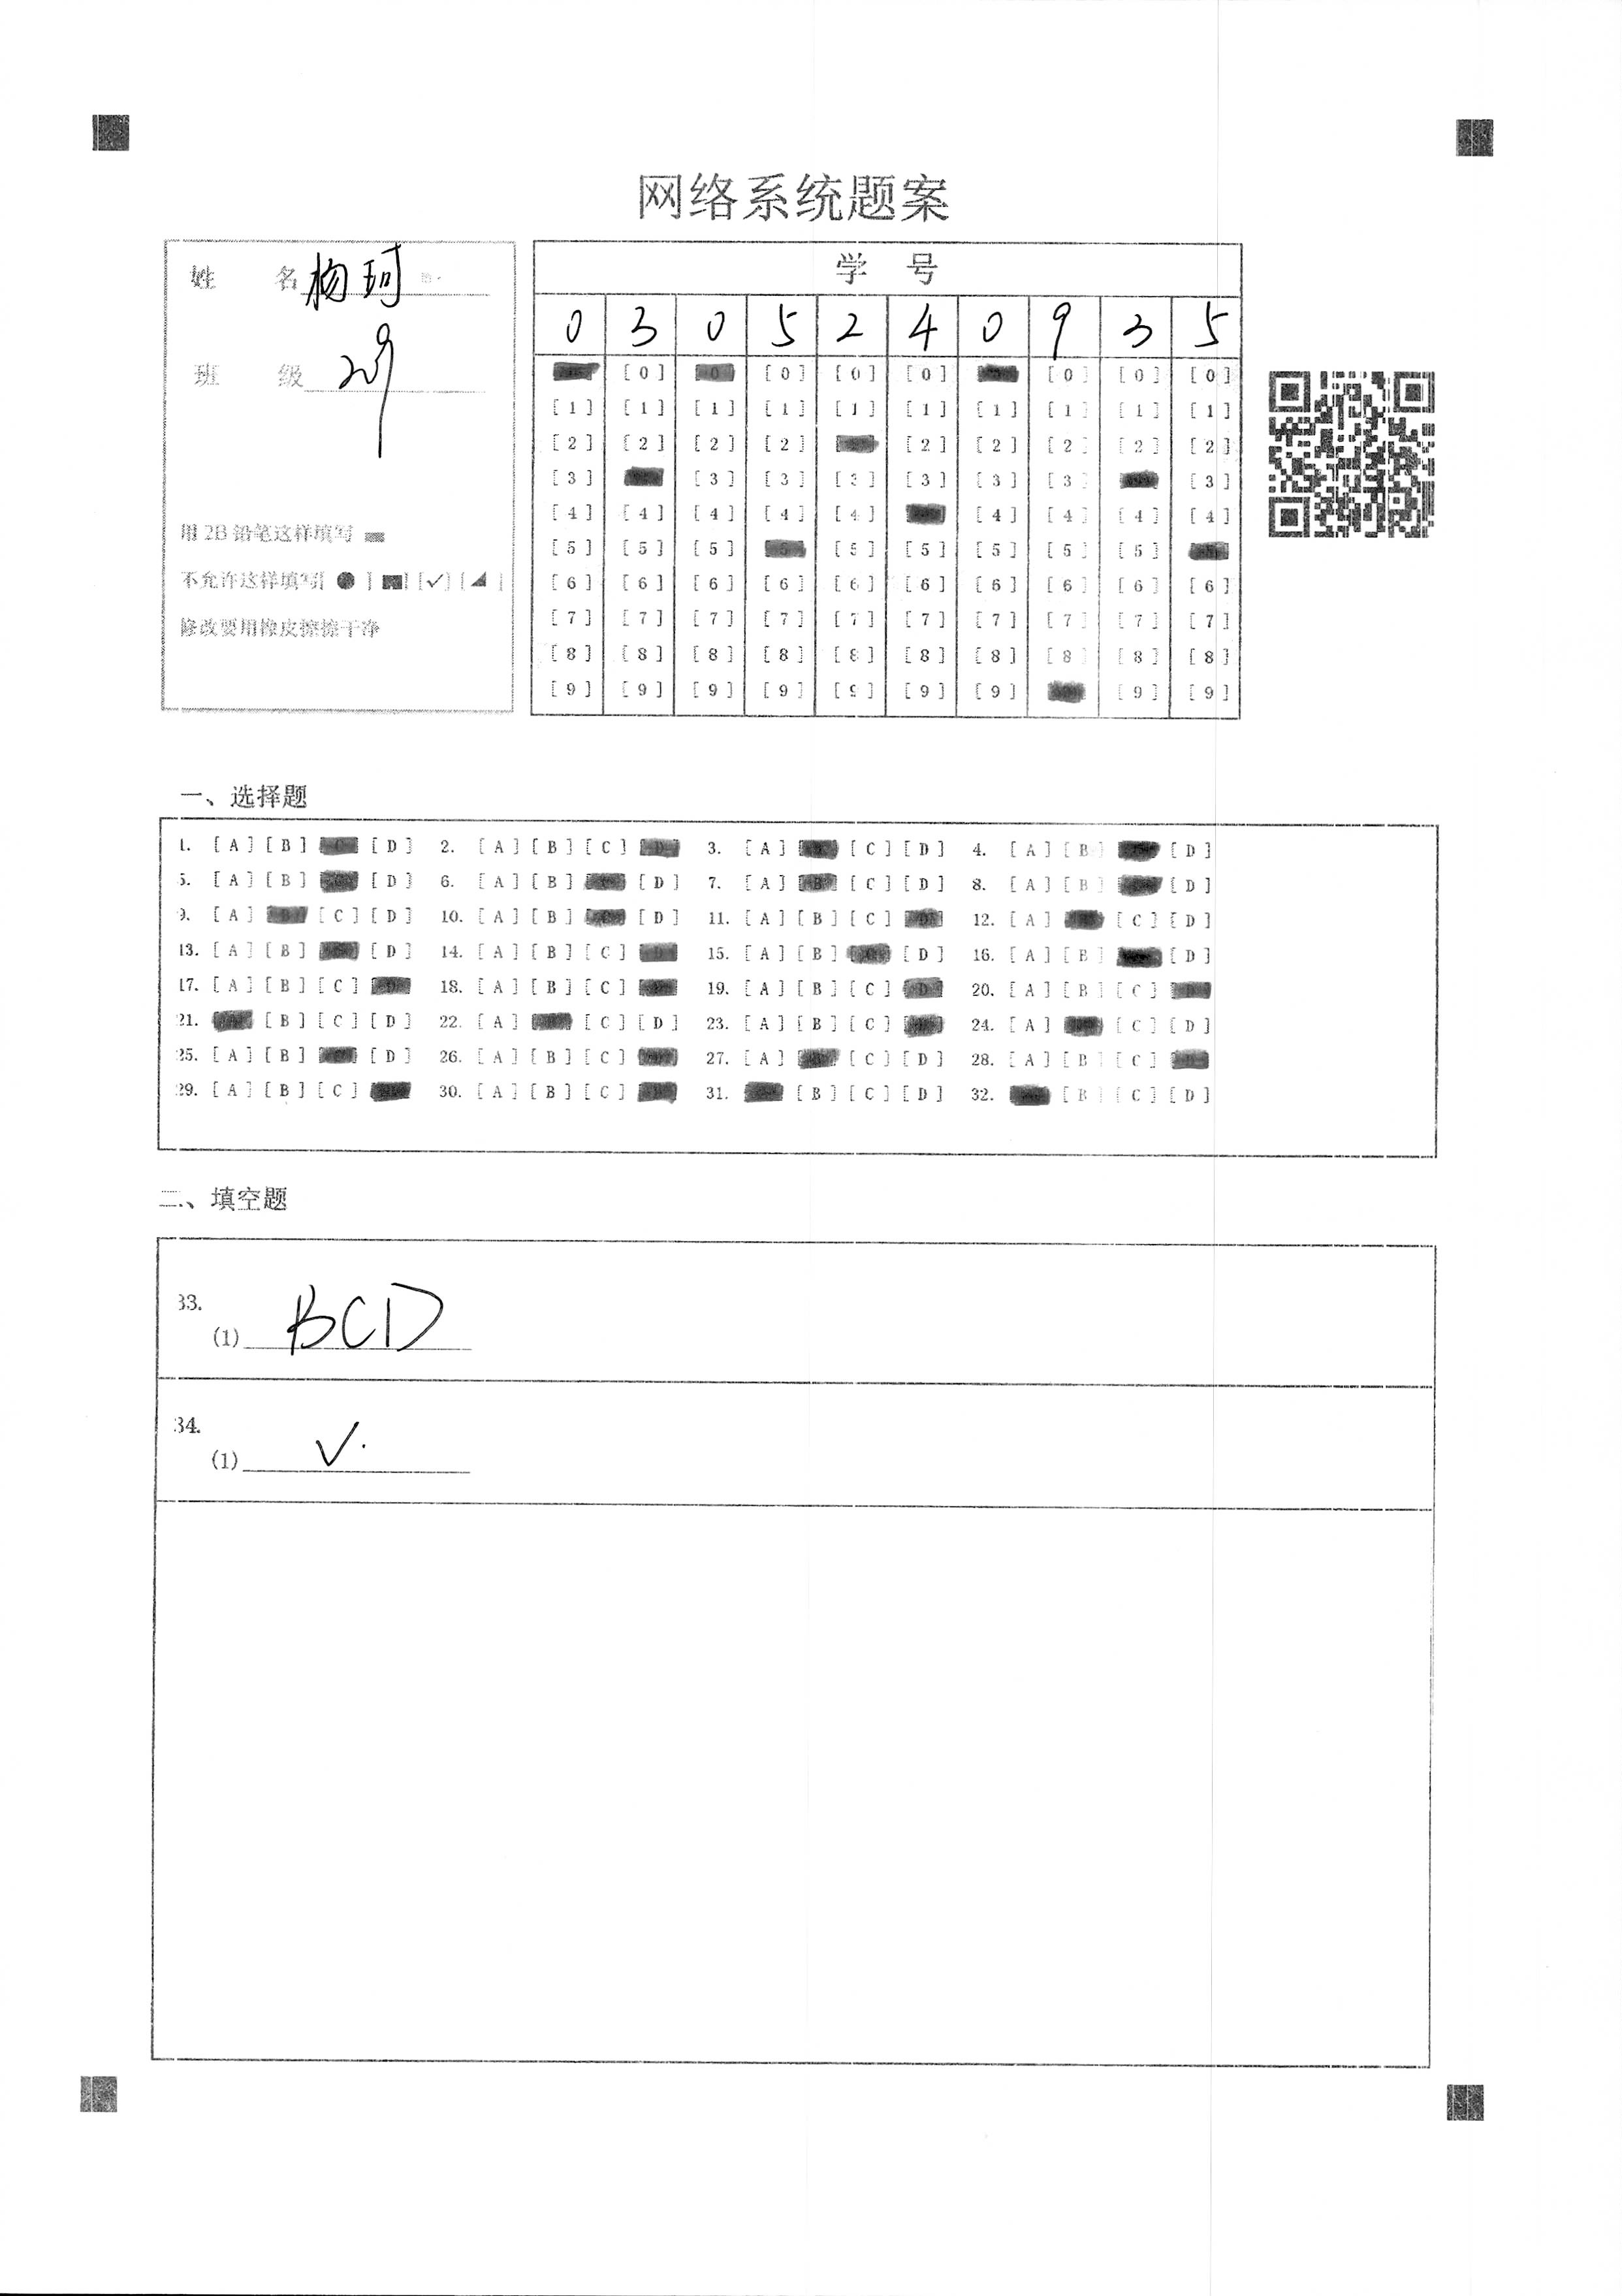 网络系统题案
姓 名 杨珂
班 级 209
用 2B 铅笔这样填写
不允许这样填写[ ● ] [■] [✓] [◢ ]
修改要用橡皮擦擦干净
学 号
0 3 0 5 2 4 0 9 3 5
[0] [0] [0] [0] [0] [0] [0]
[1] [1] [1] [1] [1] [1] [1] [1] [1] [1]
[2] [2] [2] [2] [2] [2] [2] [2] [2]
[3] [3] [3] [3] [3] [3] [3] [3]
[4] [4] [4] [4] [4] [4] [4] [4] [4]
[5] [5] [5] [5] [5] [5] [5] [5]
[6] [6] [6] [6] [6] [6] [6] [6] [6] [6]
[7] [7] [7] [7] [7] [7] [7] [7] [7] [7]
[8] [8] [8] [8] [8] [8] [8] [8] [8] [8]
[9] [9] [9] [9] [9] [9] [9] [9] [9]
一、选择题
1. [A] [B] [D] 2. [A] [B] [C] 3. [A] [C] [D] 4. [A] [B] [D]
5. [A] [B] [D] 6. [A] [B] [D] 7. [A] [C] [D] 8. [A] [B] [D]
9. [A] [C] [D] 10. [A] [B] [D] 11. [A] [B] [C] 12. [A] [C] [D]
13. [A] [B] [D] 14. [A] [B] [C] 15. [A] [B] [D] 16. [A] [B] [D]
17. [A] [B] [C] 18. [A] [B] [C] 19. [A] [B] [C] 20. [A] [B] [C]
21. [B] [C] [D] 22. [A] [C] [D] 23. [A] [B] [C] 24. [A] [C] [D]
25. [A] [B] [D] 26. [A] [B] [C] 27. [A] [C] [D] 28. [A] [B] [C]
29. [A] [B] [C] 30. [A] [B] [C] 31. [B] [C] [D] 32. [B] [C] [D]
二、填空题
33.
(1) BCD
34.
(1) ✓.